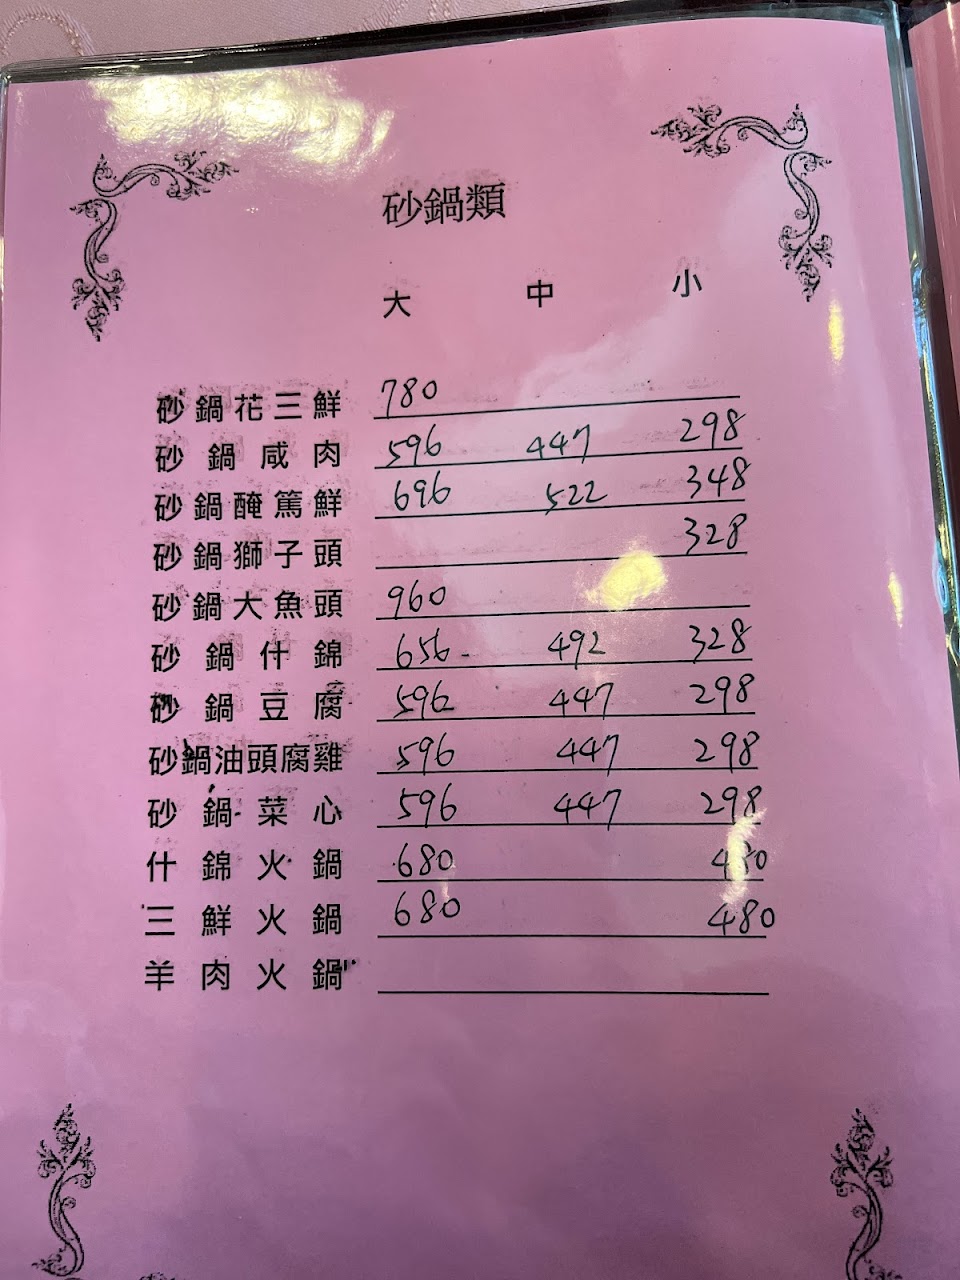 砂鍋類
大 中 小
砂鍋花三鮮 780
砂鍋咸肉 596 447 298
砂鍋醃篤鮮 696 522 348
砂鍋獅子頭 328
砂鍋大魚頭 960
砂鍋什錦 656 492 328
砂鍋豆腐 596 447 298
砂鍋油頭腐雞 596 447 298
砂鍋菜心 596 447 298
什錦火鍋 680 480
三鮮火鍋 680 480
羊肉火鍋